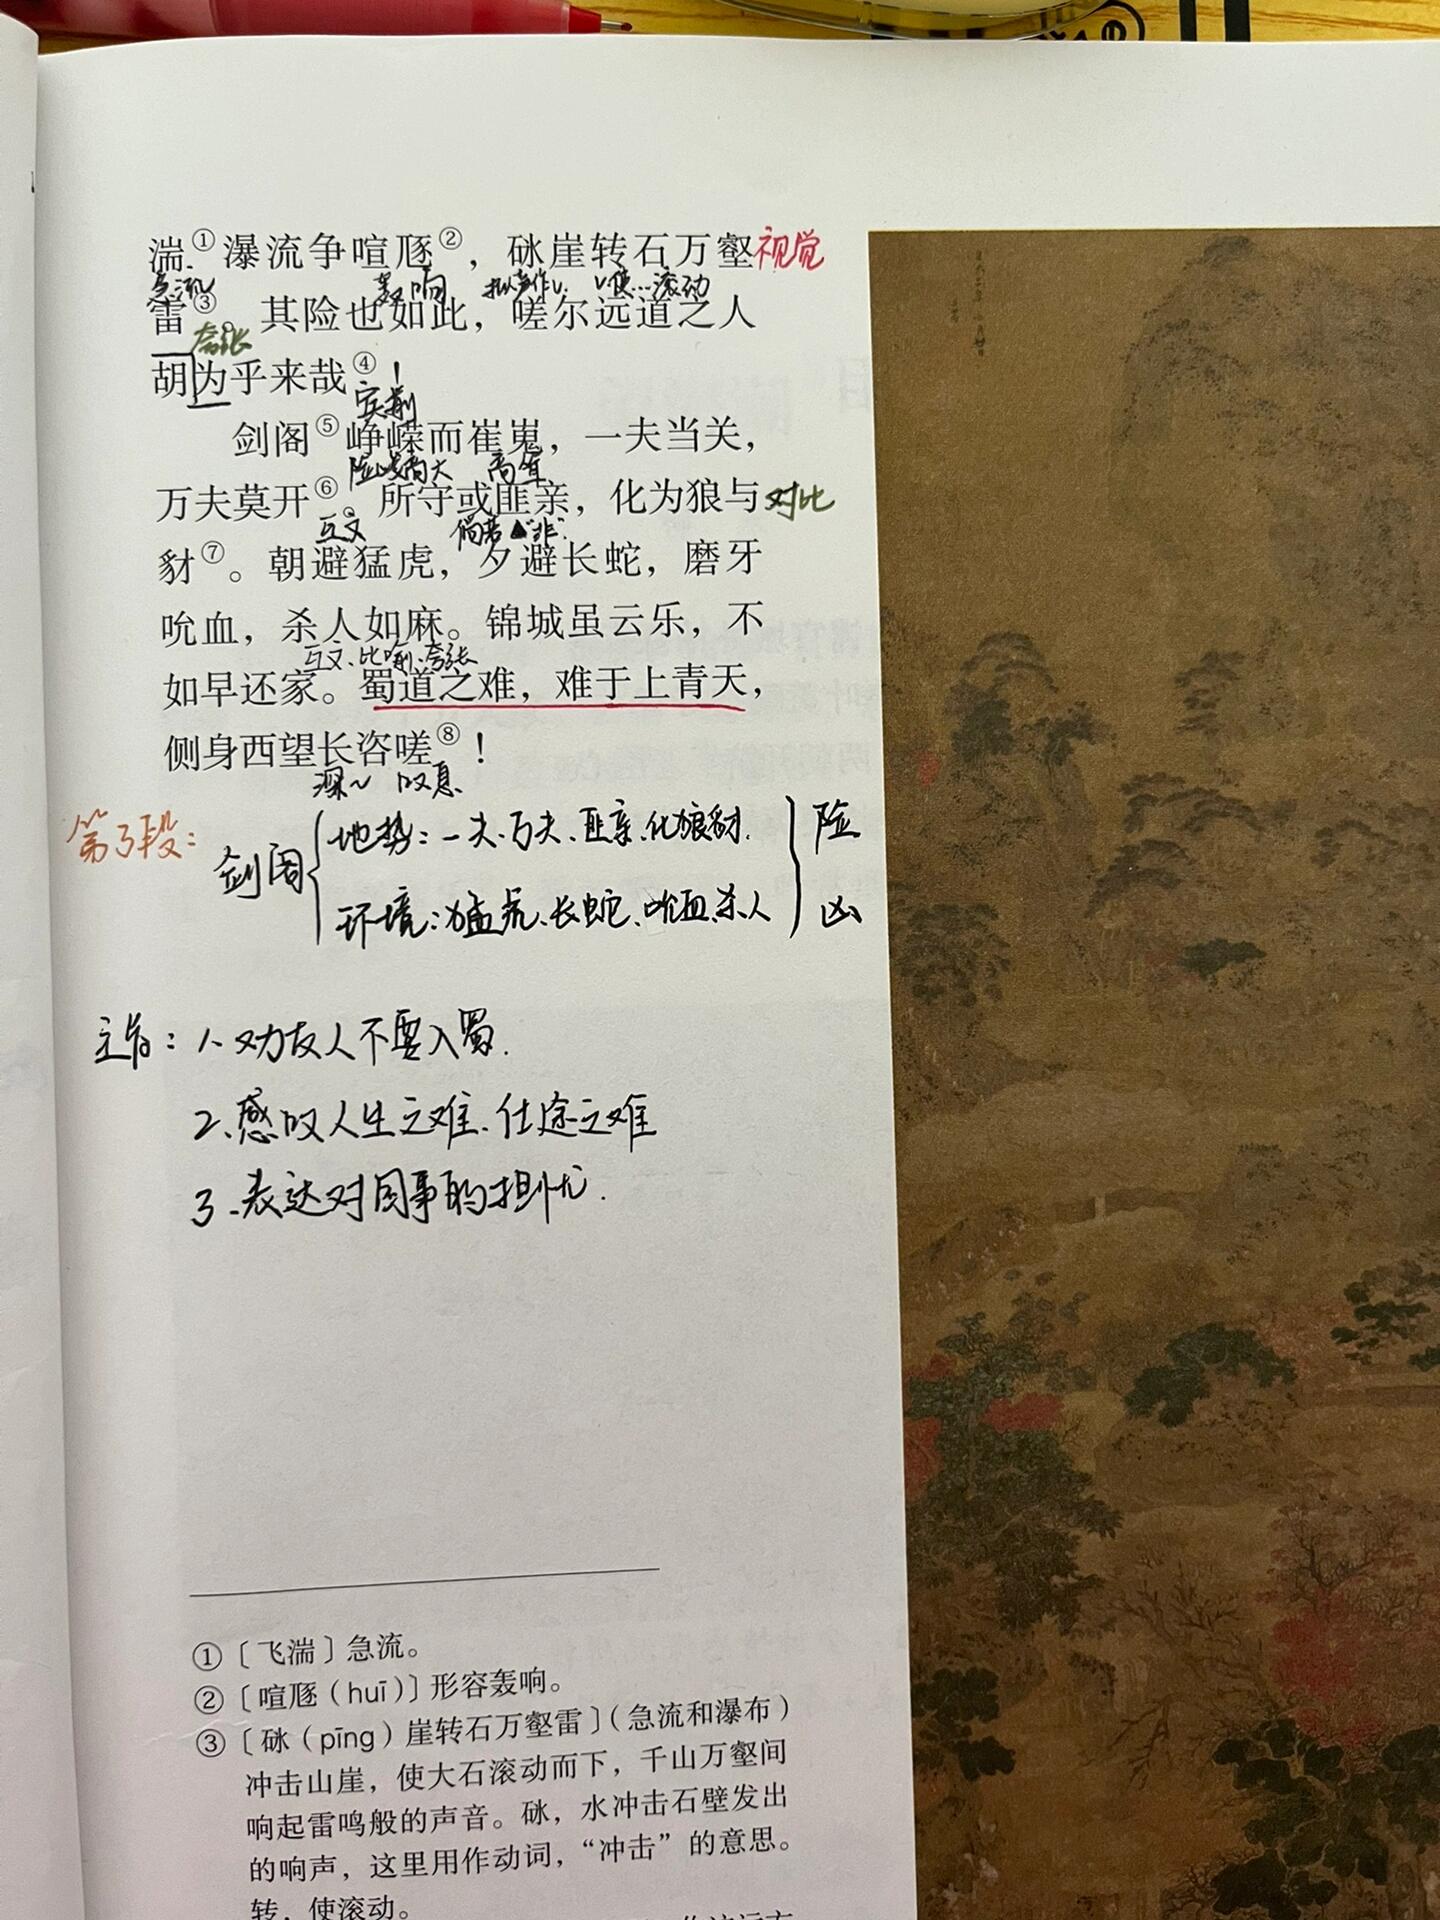 湍①瀑流争喧豗②，砯崖转石万壑 视觉
急流 轰响 拟声作v. v使…滚动
雷③。其险也如此，嗟尔远道之人
夸张
胡为乎来哉④！
宾前
剑阁⑤峥嵘而崔嵬，一夫当关，
险峻高大 高耸
万夫莫开⑥。所守或匪亲，化为狼与 对比
互文 倘若 ▲“非”
豺⑦。朝避猛虎，夕避长蛇，磨牙
吮血，杀人如麻。锦城虽云乐，不
互文、比喻、夸张
如早还家。蜀道之难，难于上青天，
侧身西望长咨嗟⑧！
深~ 叹息
第3段：
剑阁 { 地势：一夫、万夫、匪亲、化狼豺. } 险
环境：猛虎、长蛇、吮血、杀人 凶
主旨：1、劝友人不要入蜀.
2、感叹人生之难、仕途之难
3、表达对国事的担忧.
①〔飞湍〕急流。
②〔喧豗（huī）〕形容轰响。
③〔砯（pīng）崖转石万壑雷〕（急流和瀑布）
冲击山崖，使大石滚动而下，千山万壑间
响起雷鸣般的声音。砯，水冲击石壁发出
的响声，这里用作动词，“冲击”的意思。
转，使滚动。